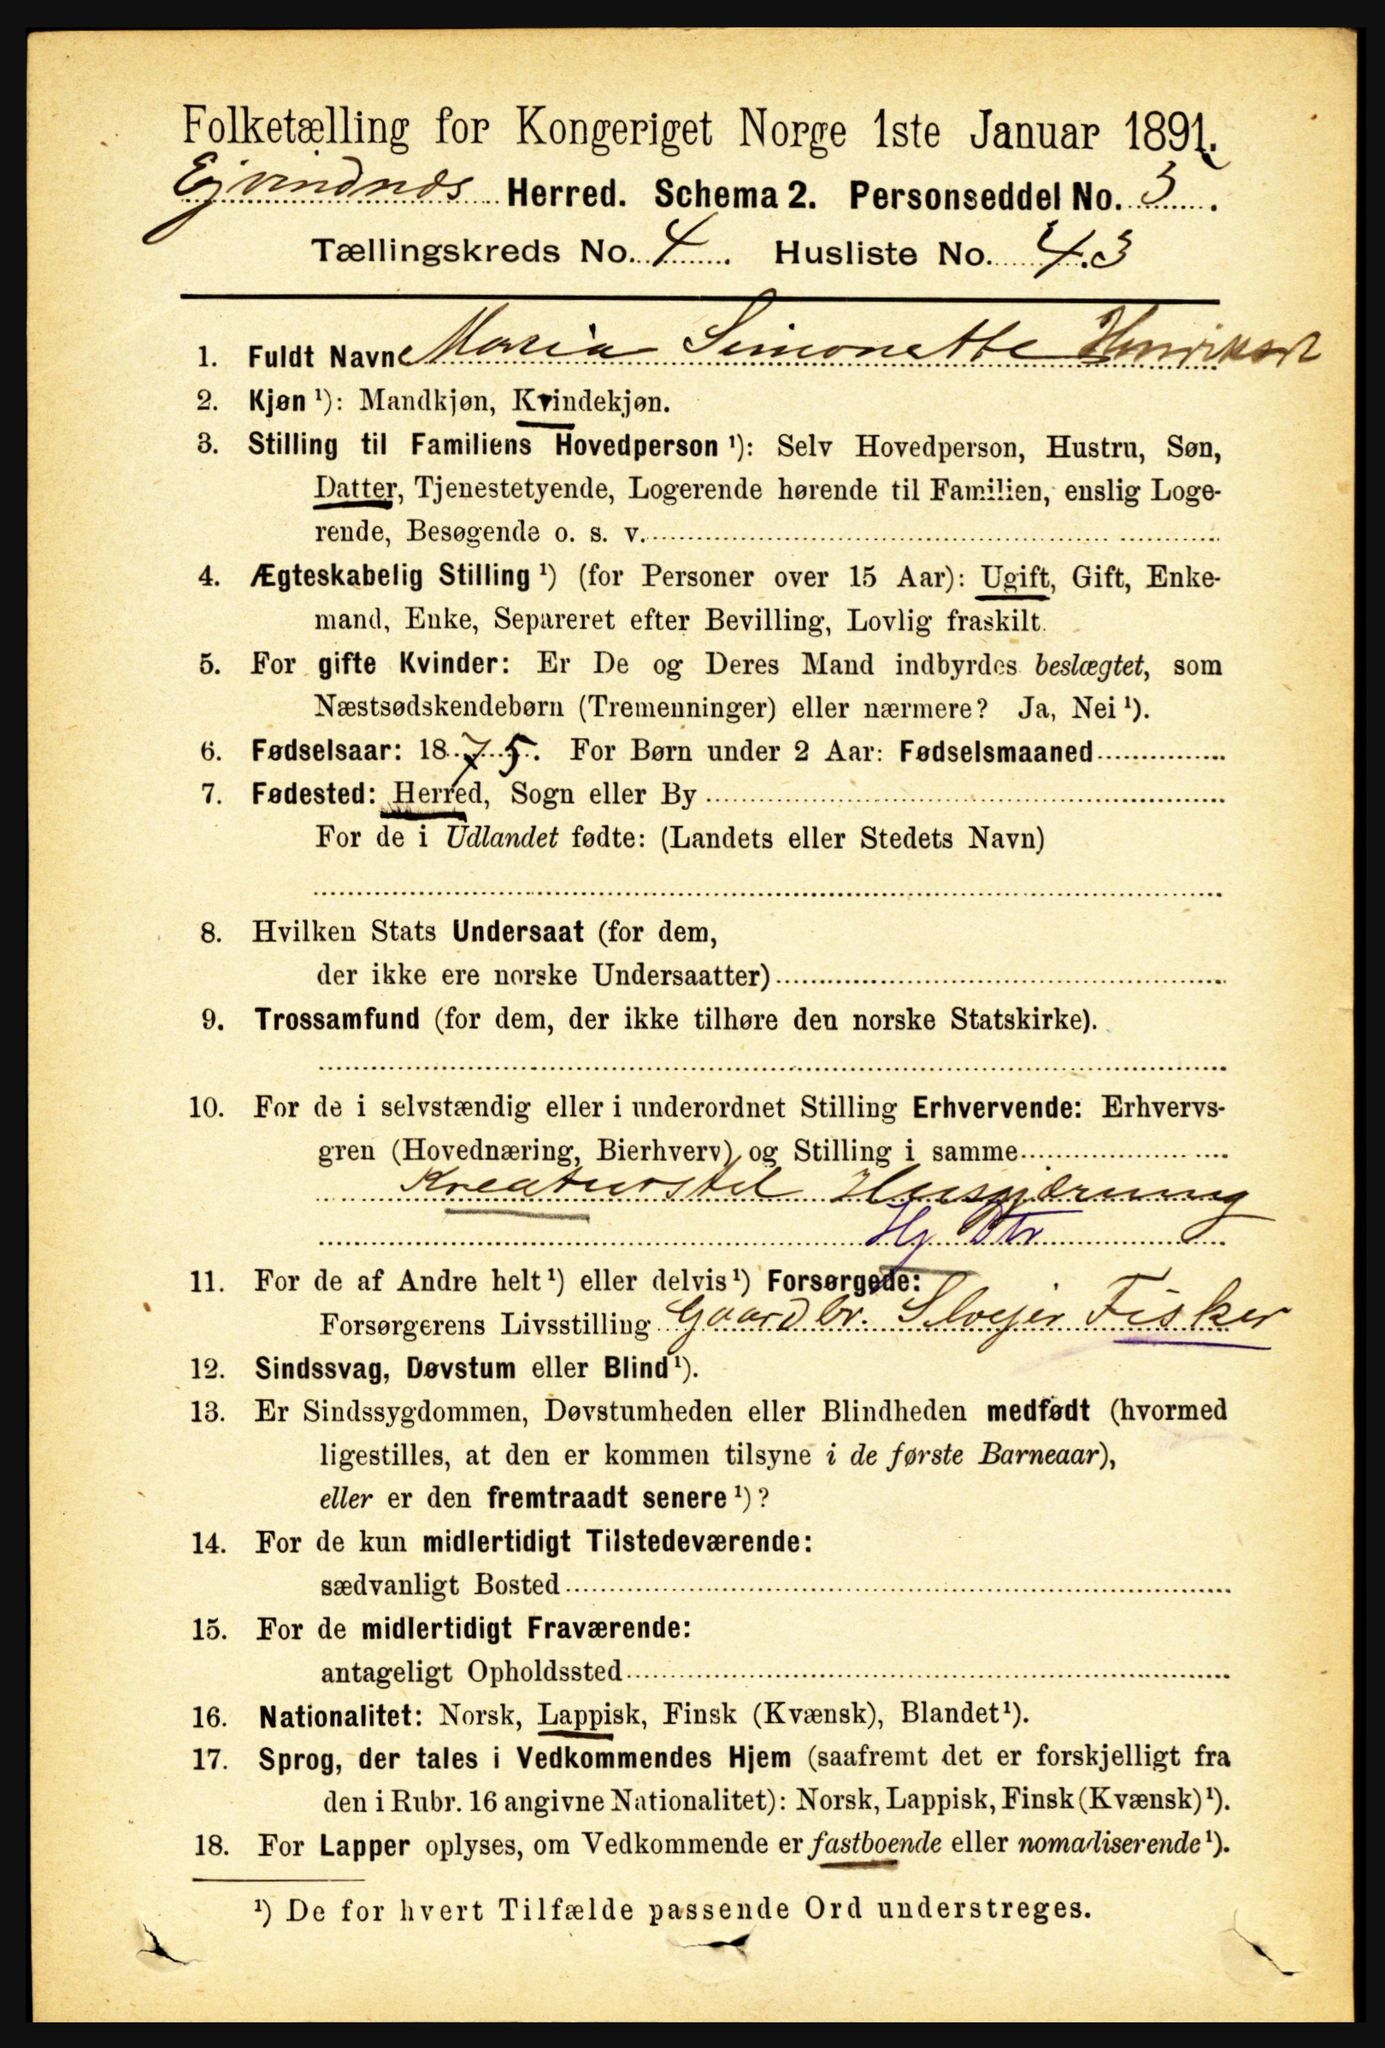 Folketælling for Kongeriget Norge 1ste Januar 1891.
Ejvindnæs Herred. Schema 2. Personseddel No. 3.
Tællingskreds No. 4. Husliste No. 43
1. Fuldt Navn Maria Simonette Henriksd
2. Kjøn ¹): Mandkjøn, Kvindekjøn.
3. Stilling til Familiens Hovedperson ¹): Selv Hovedperson, Hustru, Søn,
Datter, Tjenestetyende, Logerende hørende til Familien, enslig Loge-
rende, Besøgende o. s. v.
4. Ægteskabelig Stilling ¹) (for Personer over 15 Aar): Ugift, Gift, Enke-
mand, Enke, Separeret efter Bevilling, Lovlig fraskilt.
5. For gifte Kvinder: Er De og Deres Mand indbyrdes beslægtet, som
Næstsødskendebørn (Tremenninger) eller nærmere? Ja, Nei ¹).
6. Fødselsaar: 1875. For Børn under 2 Aar: Fødselsmaaned
7. Fødested: Herred, Sogn eller By
For de i Udlandet fødte: (Landets eller Stedets Navn)
8. Hvilken Stats Undersaat (for dem,
der ikke ere norske Undersaatter)
9. Trossamfund (for dem, der ikke tilhøre den norske Statskirke).
10. For de i selvstændig eller i underordnet Stilling Erhvervende: Erhvervs-
gren (Hovednæring, Bierhverv) og Stilling i samme
Kreaturstel Husgjærning
Hj Dtr
11. For de af Andre helt ¹) eller delvis ¹) Forsørgede:
Forsørgerens Livsstilling Gaardbr. Slvejer Fisker
12. Sindssvag, Døvstum eller Blind ¹).
13. Er Sindssygdommen, Døvstumheden eller Blindheden medfødt (hvormed
ligestilles, at den er kommen tilsyne i de første Barneaar),
eller er den fremtraadt senere ¹)?
14. For de kun midlertidigt Tilstedeværende:
sædvanligt Bosted
15. For de midlertidigt Fraværende:
antageligt Opholdssted
16. Nationalitet: Norsk, Lappisk, Finsk (Kvænsk), Blandet ¹).
17. Sprog, der tales i Vedkommendes Hjem (saafremt det er forskjelligt fra
den i Rubr. 16 angivne Nationalitet): Norsk, Lappisk, Finsk (Kvænsk) ¹).
18. For Lapper oplyses, om Vedkommende er fastboende eller nomadiserende ¹).
¹) De for hvert Tilfælde passende Ord understreges.